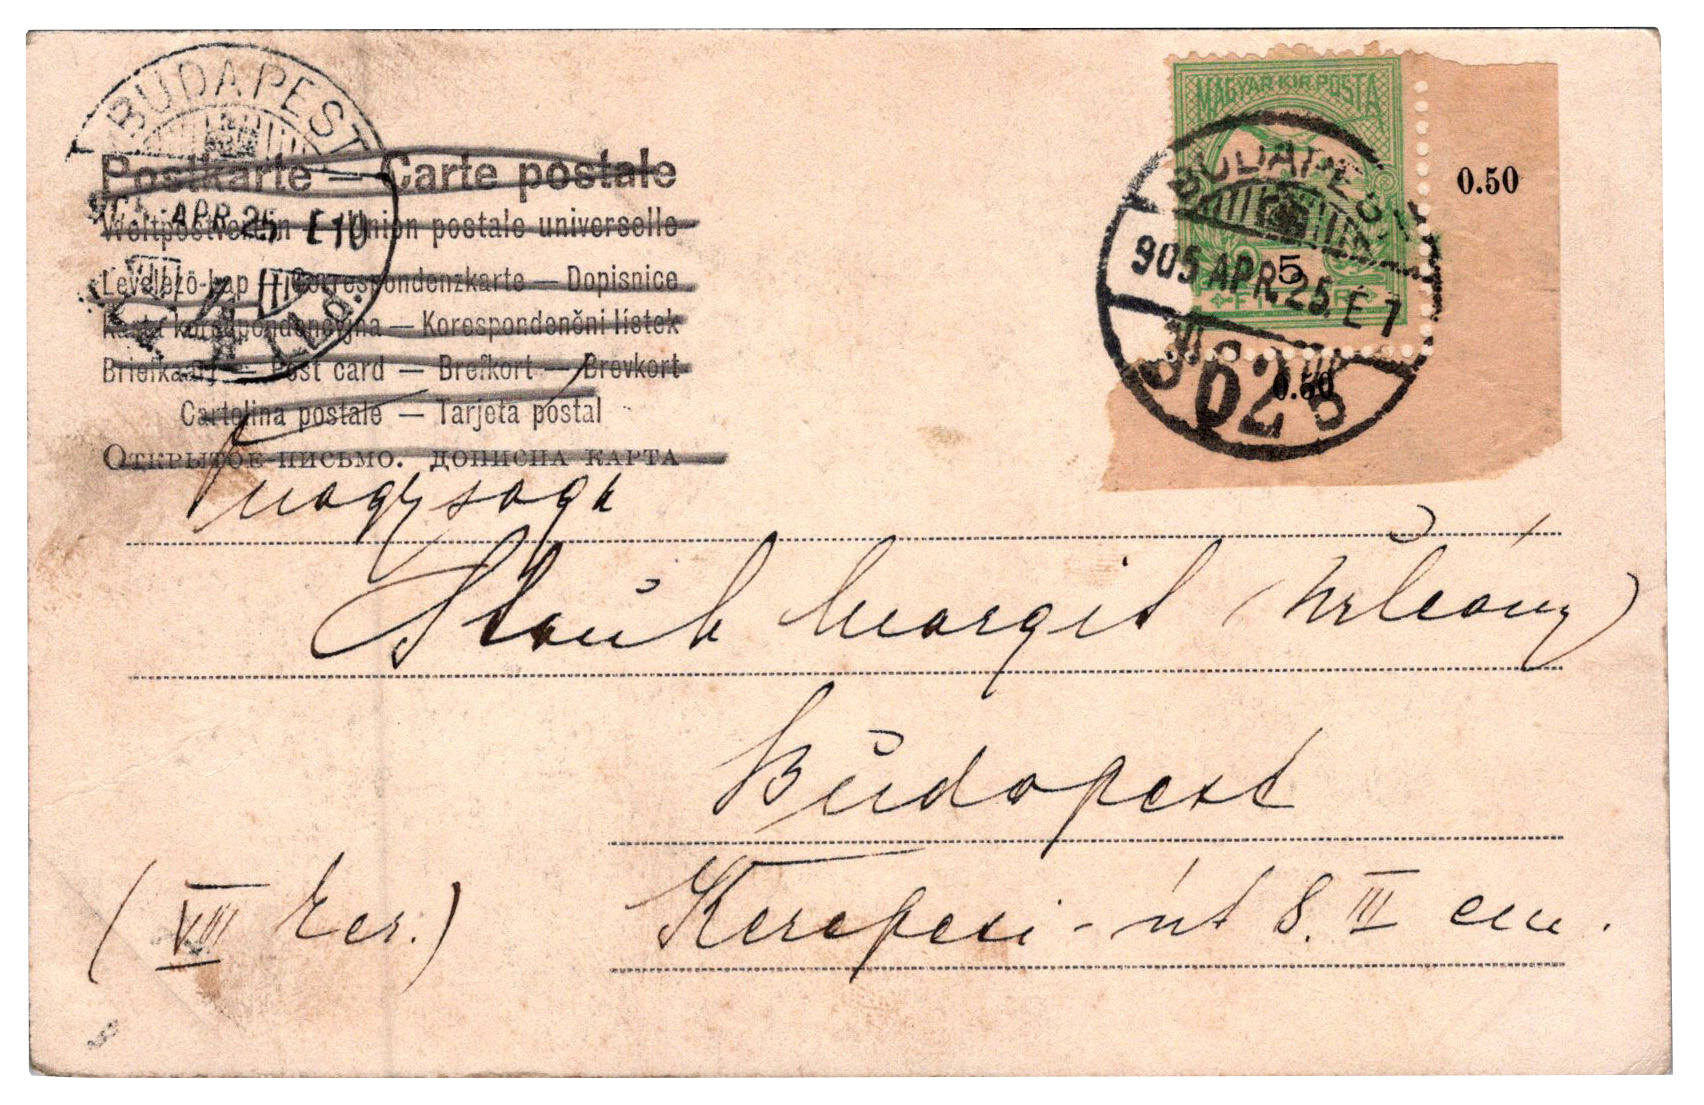 BUDAPEST
905 APR. 25. E 10
Postkarte — Carte postale
Weltpostverein — Union postale universelle
Levelező-lap — Correspondenzkarte — Dopisnice
Karta korespondencyjna — Korespondenční lístek
Briefkaart — Post card — Brefkort — Brevkort
Cartolina postale — Tarjeta postal
Открытое письмо. дописна карта
MAGYAR KIR. POSTA
5
0.50
0.50
BUDAPEST
905 APR. 25. E 7
Nagysága
Staub Margit (úrleány)
Budapest
(VIII ker.) Kerepesi-út 8. III em.